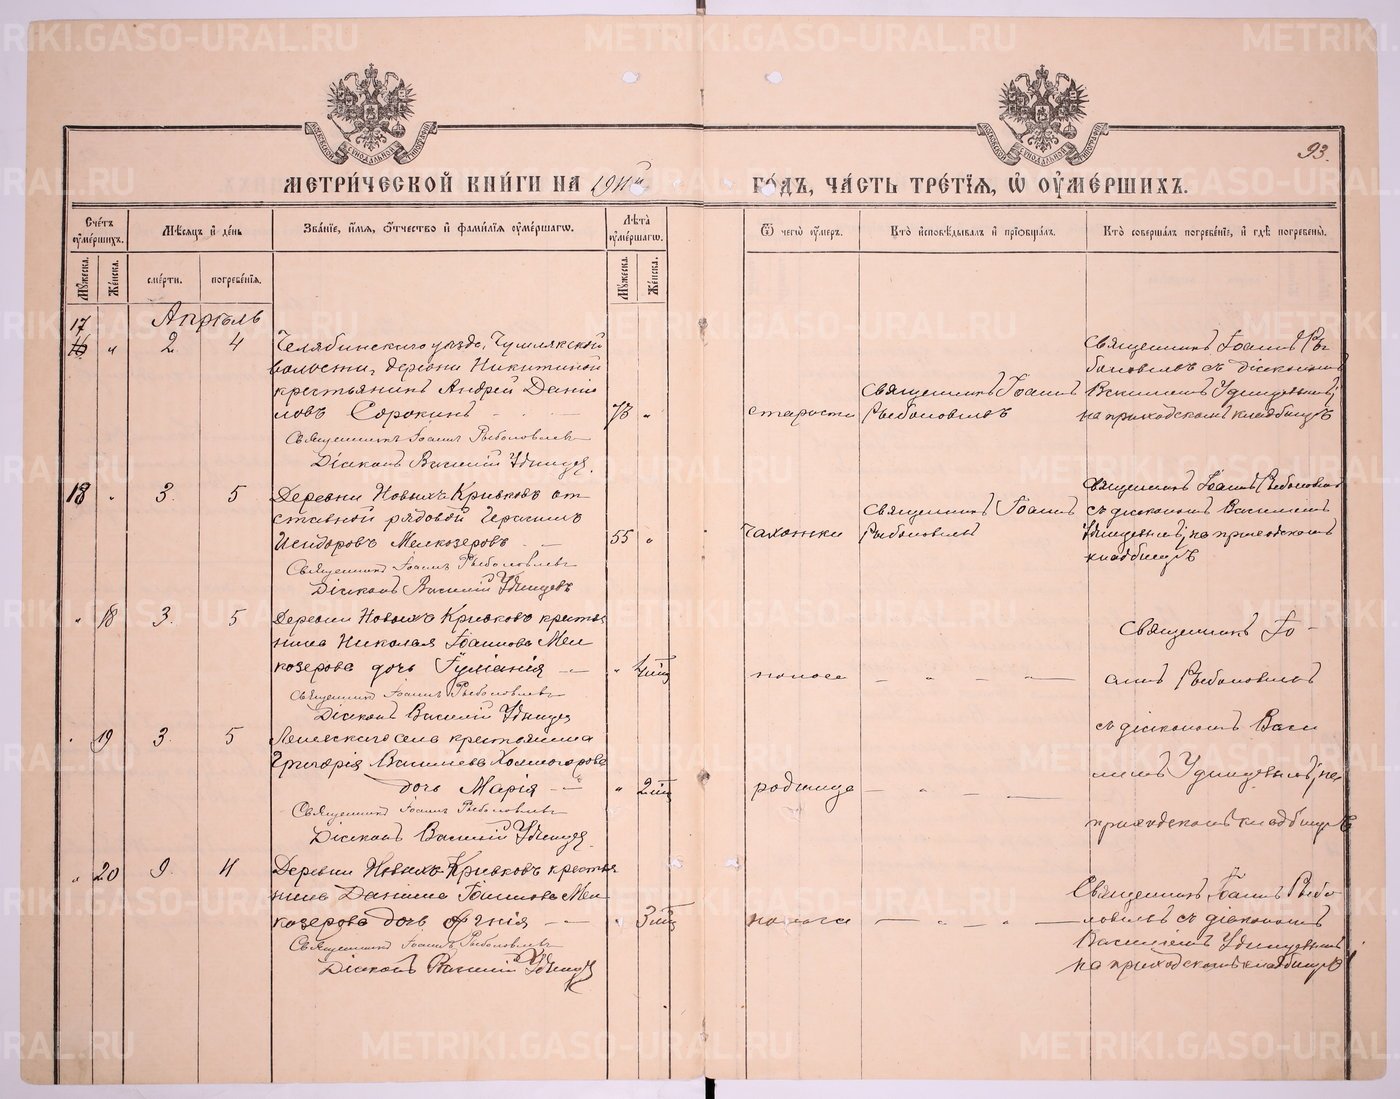 93.
МЕТРИ́ЧЕСКОЙ КНИ́ГИ НА 1911й ГО́ДЪ, ЧА́СТЬ ТРЕ́ТІЯ, Ѡ҆ ОУ҆МЕ́РШИХЪ.
Сче́тъ оу҆ме́ршихъ.
Мѣ́сяцъ и҆ де́нь
Зва́нїе, и҆́мя, ѻ҆́тчество и҆ фами́лїя оу҆ме́ршагѡ.
Лѣ́та оу҆ме́ршагѡ.
Ѿ чегѡ̀ оу҆́меръ.
Кто̀ и҆сповѣ́дывалъ и҆ прїѡбща́лъ.
Кто̀ соверша́лъ погребе́нїе, и҆ гдѣ̀ погребе́ны.
Му́жеска.
Же́нска.
сме́рти.
погребе́нїя.
Му́жеска.
Же́нска.
Апрѣль
17
16 „ 2 4
Челябинскаго уѣзда, Чумлякской
волости, деревни Никитиной
крестьянинъ Андрей Даніи
ловъ Сорокинъ 73 „
Священникъ Іоаннъ Рыболовлевъ
Діаконъ Василій Удинцевъ.
старости
Священникъ Іоаннъ
Рыболовлевъ
Священникъ Іоаннъ Ры
боловлевъ съ діакономъ
Василіемъ Удинцевымъ,
на приходскомъ кладбищѣ
18 „ 3. 5
Деревни Новыхъ Кривковъ от
ставной рядовой Герасимъ
Исидоровъ Мелкозеровъ 55 „
Священникъ Іоаннъ Рыболовлевъ
Діаконъ Василій Удинцевъ
чахотки
Священникъ Іоаннъ
Рыболовлевъ
Священникъ Іоаннъ Рыболовлевъ
съ діакономъ Василіемъ
Удинцевымъ, на приходскомъ
кладбищѣ
„ 18 3. 5
Деревни Новыхъ Кривковъ кресть
янина Николая Іоаннова Мел
козерова дочь Іуліанія — „ 4 мц
Священникъ Іоаннъ Рыболовлевъ
Діаконъ Василій Удинцевъ
поноса — „ — „ —
Священникъ Іо-
аннъ Рыболовлевъ
съ діакономъ Васи
„ 19 3. 5
крестьянина
Григорія Васильева Холмогорова
дочь Марія — „ 2 мц
Священникъ Іоаннъ Рыболовлевъ
Діаконъ Василій Удинцевъ
родимца — „ — „ —
ліемъ Удинцевымъ, на
приходскомъ кладбищѣ
„ 20 9. 11
Деревни Новыхъ Кривковъ кресть
янина Даніила Іоаннова Мел
козерова дочь Агнія — „ 3 мц
Священникъ Іоаннъ Рыболовлевъ
Діаконъ Василій Удинцевъ
поноса — „ — „ —
Священникъ Іоаннъ Рыбо-
ловлевъ съ діакономъ
Василіемъ Удинцевымъ,
на приходскомъ кладбищѣ
METRIKI.GASO-URAL.RU